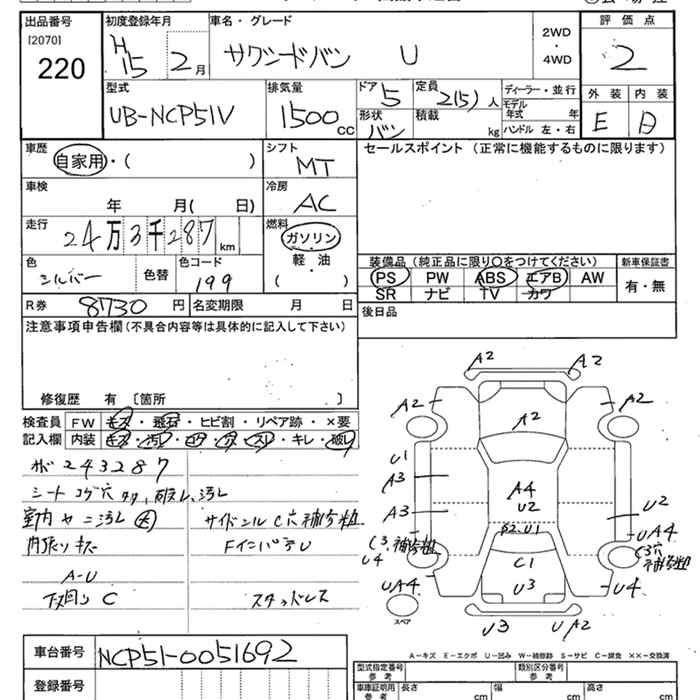 出品番号
[2070]
220
初度登録年月
H 15 年 2月
車名・グレード
サクシードバン U
2WD
・
4WD
評価点
2
型式
UB-NCP51V
排気量
1500 cc
ドア 5
形状 バン
定員 2(5) 人
積載 kg
ディーラー・並行
モデル年式 年
ハンドル 左・右
外装 内装
E D
車歴
自家用・( )
シフト
MT
セールスポイント (正常に機能するものに限ります)
車検
年 月( 日)
冷房
AC
走行
24万3千287 km
燃料
ガソリン
軽・油
( )
色
シルバー
色替
色コード
199
装備品 (純正品に限り○をつけてください)
新車保証書
PS PW ABS エアB AW
SR ナビ TV カワ
有・無
R券 8730 円 名変期限 月 日
後日品
注意事項申告欄 (不具合内容等は具体的に記入して下さい)
修復歴 有 〔箇所 〕
検査員記入欄
FW キズ・飛石・ヒビ割・リペア跡・×要
内装
キレ
破レ
メボ 243287
シート コゲ穴
室内ヤニ汚レ 大
サイドシル C穴 補修粗
内張リ キズ
Fインパデ U
A-U
下回リ C
スタッドレス
A2 A2
A2 A2
A2
U1
A3
A4
U2
A3
U2
B2.U1
UA4
C3.補修粗
C3穴
補修粗
U4
C1
UA4
U3
U4
スペア
U3
U A2
A−キズ E−エクボ U−凹み W−補修跡 S−サビ C−腐食 ××−交換済
車台番号
NCP51-0051692
登録番号
型式指定番号
参考
類別区分番号
参考
車庫証明用
参考
長さ cm 幅 cm 高さ cm